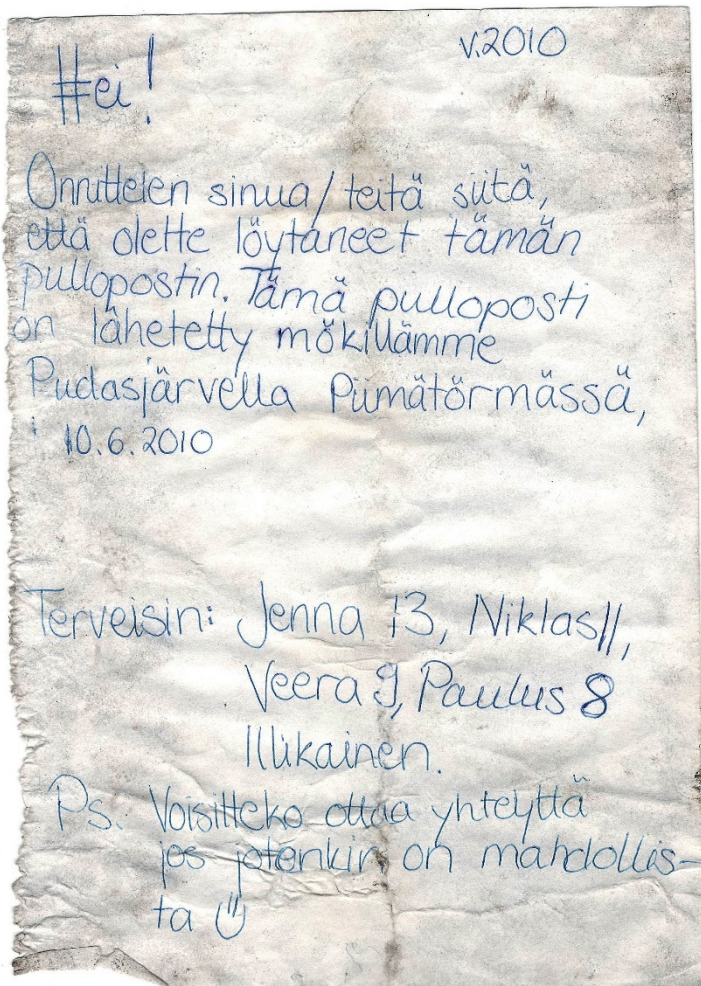 v.2010
Hei!
Onnittelen sinua/teitä siitä,
että olette löytäneet tämän
pullopostin. Tämä pulloposti
on lähetetty mökillämme
Pudasjärvella Piimätörmässä,
10.6.2010
Terveisin: Jenna 13, Niklas 11,
Veera 9, Paulus 8
Illikainen.
Ps. Voisitteko ottaa yhteyttä
jos jotenkin on mahdollis-
ta